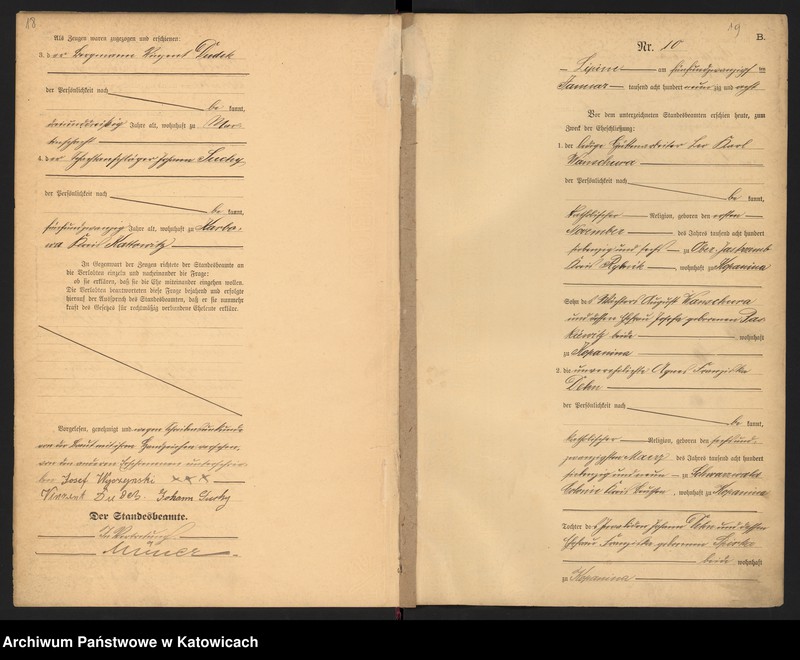 18
Als Zeugen waren zugezogen und erschienen:
3. der Bergmann Vinzent Dudek
der Persönlichkeit nach
be kannt,
dreiunddreißig Jahre alt, wohnhaft zu
4. der Johann Suchy
der Persönlichkeit nach
be kannt,
fünfundzwanzig Jahre alt, wohnhaft zu Karbo-
wa Kreis Kattowitz
In Gegenwart der Zeugen richtete der Standesbeamte an
die Verlobten einzeln und nacheinander die Frage:
ob sie erklären, daß sie die Ehe miteinander eingehen wollen.
Die Verlobten beantworteten diese Frage bejahend und erfolgte
hierauf der Ausspruch des Standesbeamten, daß er sie nunmehr
kraft des Gesetzes für rechtmäßig verbundene Eheleute erkläre.
Vorgelesen, genehmigt und wegen Schreibensunkunde
von der Braut mit ihrem Handzeichen versehen,
von den anderen Erschienenen unterschrie-
ben Josef xxx
Vinzent Dudek. Johann Suchy
Der Standesbeamte.
In Vertretung
19
B.
Nr. 10
Lipine am fünfundzwanzigsten
Januar tausend acht hundert neunzig und acht
Vor dem unterzeichneten Standesbeamten erschien heute, zum
Zweck der Eheschließung:
1. der ledige Hüttenarbeiter Karl
Wanschura
der Persönlichkeit nach
be kannt,
katholischer Religion, geboren den ersten
November des Jahres tausend acht hundert
siebenzig und sechs zu Ober-Jastrzemb
Kreis Rybnik, wohnhaft zu Kopanina
Sohn des August Wanschura
und dessen Ehefrau Josefa geborenen
beide wohnhaft
zu Kopanina
2. die unverehelichte Agnes Franziska
Dehn
der Persönlichkeit nach
be kannt,
katholischer Religion, geboren den sechsund-
zwanzigsten Maerz des Jahres tausend acht hundert
siebenzig und neun zu Schwarzwald-
Colonie Kreis Beuthen, wohnhaft zu Kopanina
Tochter des Invaliden Johann Dehn und dessen
Ehefrau Franziska geborenen
beide wohnhaft
zu Kopanina
Archiwum Państwowe w Katowicach